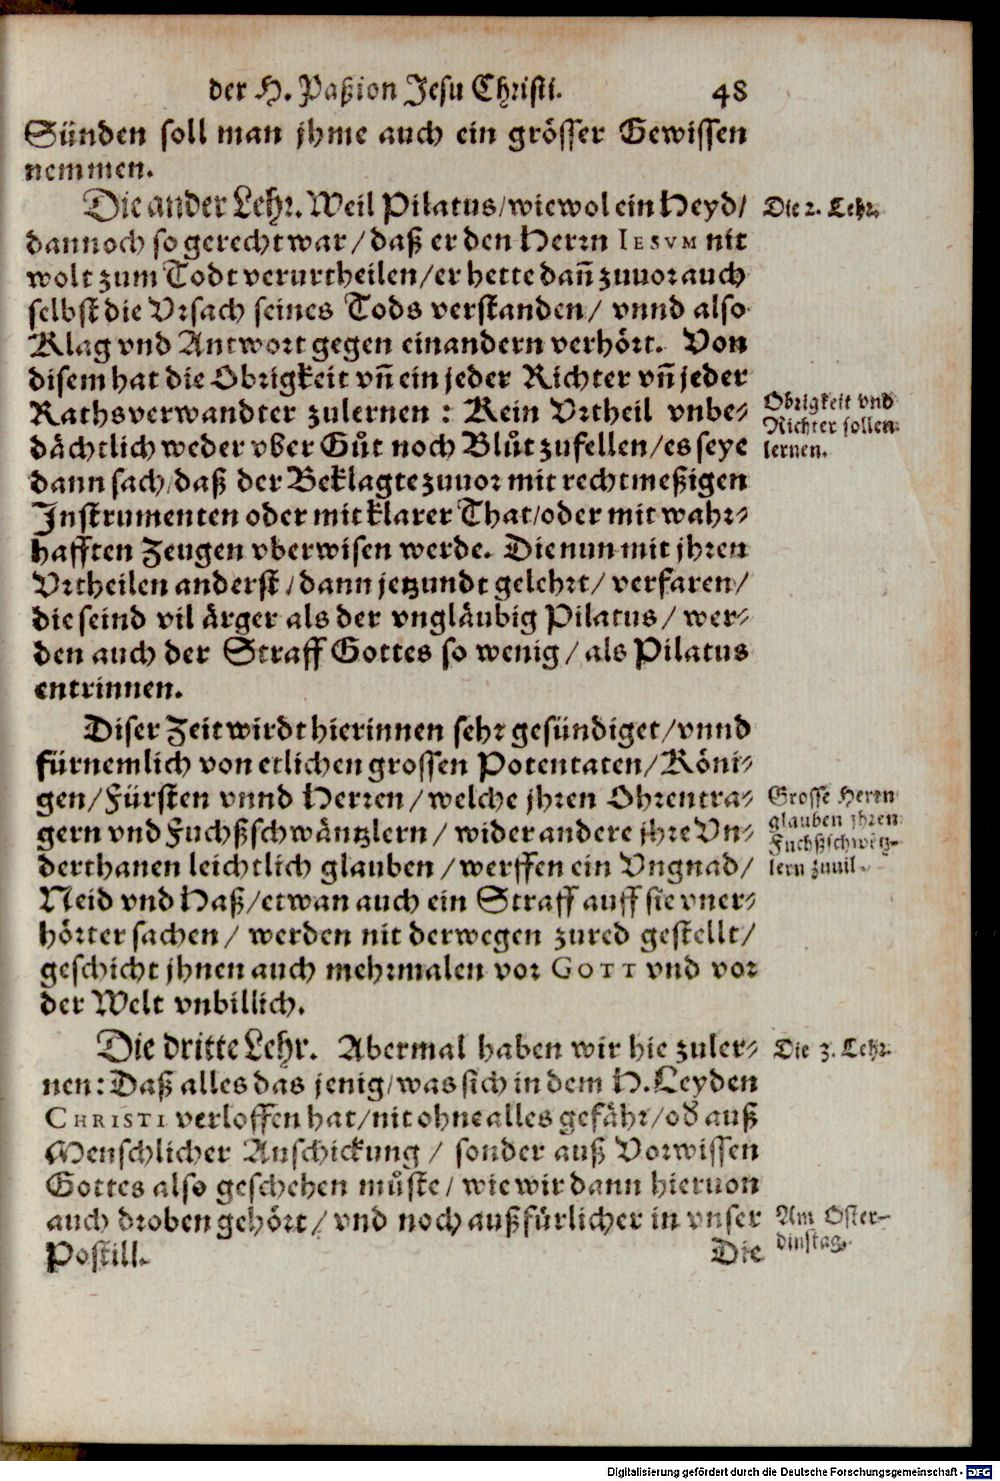 der H. Paßion Jesu Christi. 48
Sünden soll man jhme auch ein grösser Gewissen
nemmen.
Die ander Lehr. Weil Pilatus/wiewol ein Heyd/
Die 2. Lehr.
dannoch so gerecht war/daß er den Herrn IESVM nit
wolt zum Todt verurtheilen/er hette dañ zuuor auch
selbst die Vrsach seines Tods verstanden/ vnnd also
Klag vnd Antwort gegen einandern verhört. Von
disem hat die Obrigkeit vñ ein jeder Richter vñ jeder
Rathsverwandter zulernen: Kein Vrtheil vnbe-
dächtlich weder vber Gůt noch Blůt zufellen/es seye
dann sach/daß der Beklagte zuuor mit rechtmeßigen
Obrigkeit vnd
Richter sollen
lernen.
Instrumenten oder mit klarer That/oder mit wahr-
hafften Zeugen vberwisen werde. Die nun mit jhren
Vrtheilen anderst/dann jetzundt gelehrt/ verfaren/
die seind vil ärger als der vngläubig Pilatus/ wer-
den auch der Straff Gottes so wenig/als Pilatus
entrinnen.
Diser Zeit wirdt hierinnen sehr gesündiget/vnnd
fürnemlich von etlichen grossen Potentaten/Köni-
gen/Fürsten vnnd Herren/welche jhren Ohrentra-
gern vnd Fuchßschwäntzlern/ wider andere jhre Vn-
derthanen leichtlich glauben/werffen ein Vngnad/
Grosse Herrn
glauben jhren
Fuchßschwetz-
lern zuuil.
Neid vnd Haß/etwan auch ein Straff auff sie vner-
hörter sachen/ werden nit derwegen zured gestellt/
geschicht jhnen auch mehrmalen vor GOTT vnd vor
der Welt vnbillich.
Die dritte Lehr. Abermal haben wir hie zuler-
Die 3. Lehr.
nen: Daß alles das jenig/was sich in dem H. Leyden
CHRISTI verloffen hat/nit ohne alles gefähr/od auß
Menschlicher Anschickung/ sonder auß Vorwissen
Gottes also geschehen můste/ wie wir dann hieruon
auch droben gehört/ vnd noch außfürlicher in vnser
Postill.
Am Oster-
dinstag.
Die
Digitalisierung gefördert durch die Deutsche Forschungsgemeinschaft - DFG